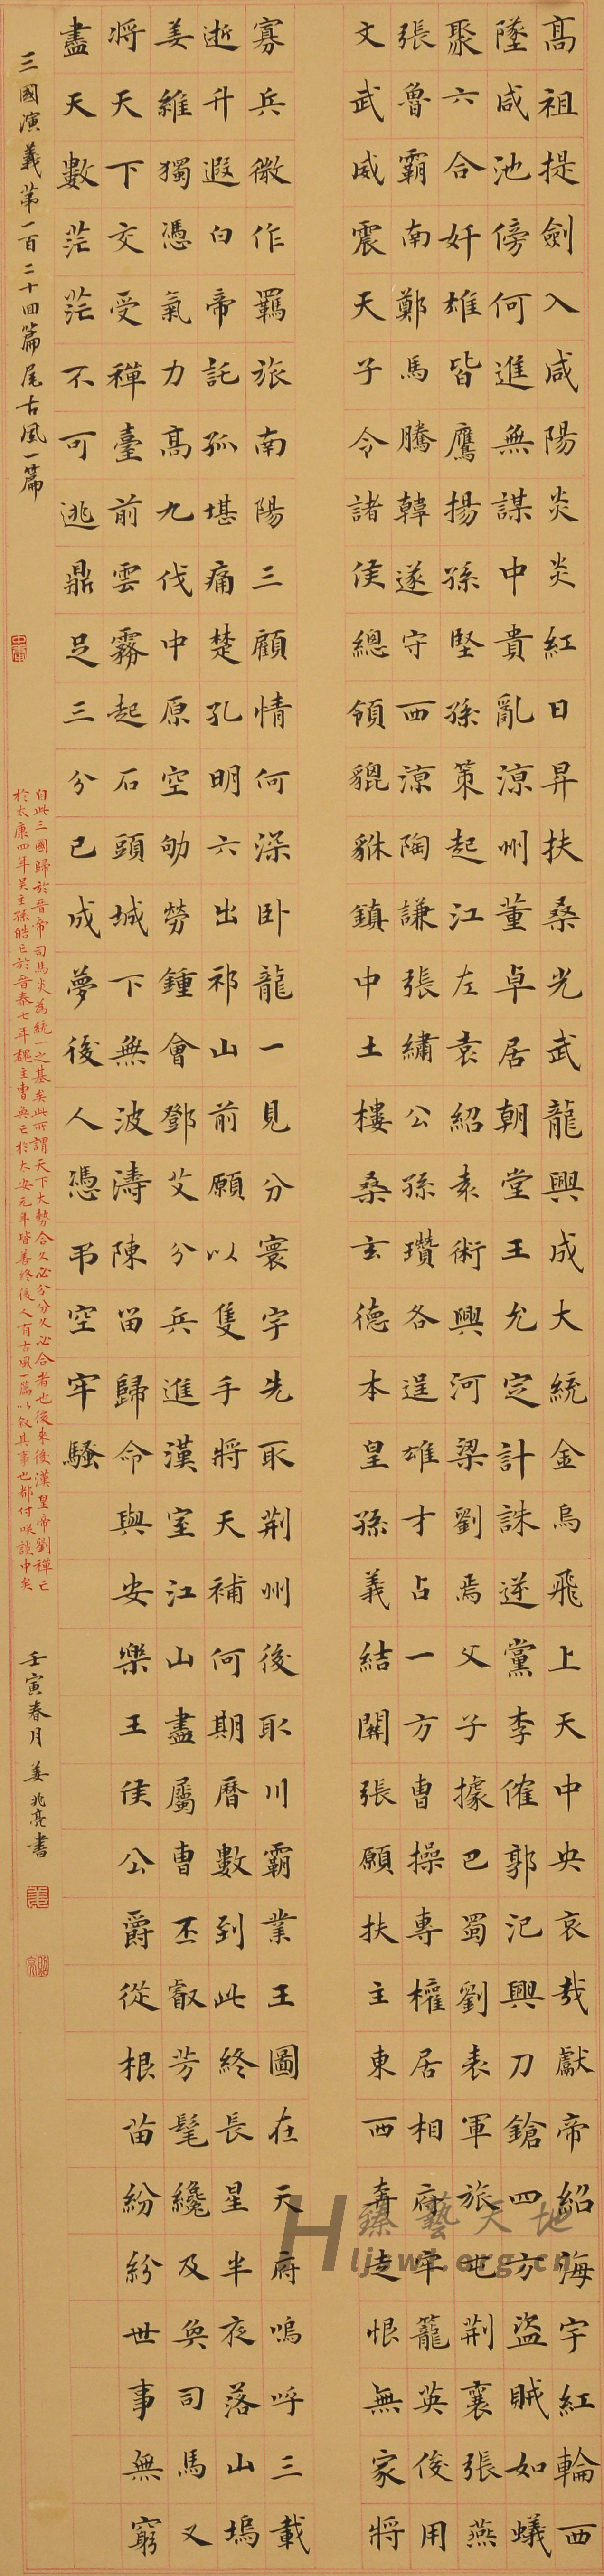 高祖提劍入咸陽炎炎紅日昇扶桑光武龍興成大統金烏飛上天中央哀哉獻帝紹海宇紅輪西
墜咸池傍何進無謀中貴亂涼州董卓居朝堂王允定計誅逆黨李傕郭汜興刀鎗四方盜賊如蟻
聚六合奸雄皆鷹揚孫堅孫策起江左袁紹袁術興河梁劉焉父子據巴蜀劉表軍旅屯荊襄張燕
張魯霸南鄭馬騰韓遂守西涼陶謙張繡公孫瓚各逞雄才占一方曹操專權居相府牢籠英俊用
文武威震天子令諸侯總領貔貅鎮中土樓桑玄德本皇孫義結關張願扶主東西奔走恨無家將
寡兵微作羈旅南陽三顧情何深臥龍一見分寰宇先取荊州後取川霸業王圖在天府嗚呼三載
逝升遐白帝託孤堪痛楚孔明六出祁山前願以隻手將天補何期曆數到此終長星半夜落山塢
姜維獨憑氣力高九伐中原空劬勞鍾會鄧艾分兵進漢室江山盡屬曹丕叡芳髦纔及奐司馬又
將天下交受禪臺前雲霧起石頭城下無波濤陳留歸命與安樂王侯公爵從根苗紛紛世事無窮
盡天數茫茫不可逃鼎足三分已成夢後人憑弔空牢騷
三國演義第一百二十回篇尾古風一篇
自此三國歸於晉帝司馬炎為統一之基矣此所謂天下大勢合久必分分久必合者也後來後漢皇帝劉禪亡
於太康四年吳主孫皓亡於晉泰七年魏主曹奐亡於太安元年皆善終後人有古風一篇以敘其事也都付笑談中矣
壬寅春月 姜兆亮書
臻藝天地
Hljzwj.org.cn